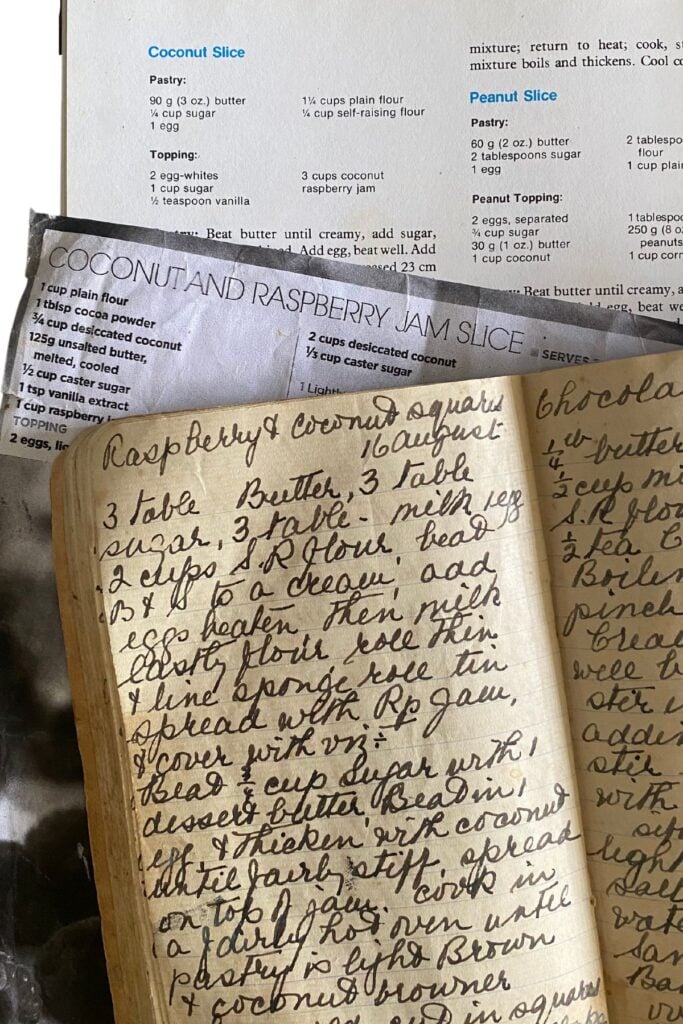 Coconut Slice
Pastry:
90 g (3 oz.) butter
¼ cup sugar
1 egg
1¼ cups plain flour
¼ cup self-raising flour
Topping:
2 egg-whites
1 cup sugar
½ teaspoon vanilla
3 cups coconut
raspberry jam
Beat butter until creamy, add sugar,
Add egg, beat well. Add
23 cm
mixture; return to heat; cook,
mixture boils and thickens. Cool
Peanut Slice
Pastry:
60 g (2 oz.) butter
2 tablespoons sugar
1 egg
2
flour
1 cup
Peanut Topping:
2 eggs, separated
¾ cup sugar
30 g (1 oz.) butter
1 cup coconut
1
250 g (8
peanuts
1 cup
Beat butter until creamy,
egg, beat
COCONUT AND RASPBERRY JAM SLICE
SERVES
1 cup plain flour
1 tblsp cocoa powder
¾ cup desiccated coconut
125g unsalted butter,
melted, cooled
½ cup caster sugar
1 tsp vanilla extract
1 cup raspberry
TOPPING
2 eggs,
2 cups desiccated coconut
⅓ cup caster sugar
1
Raspberry & coconut squares
16 August
3 table Butter, 3 table
sugar, 3 table - milk egg
2 cups S.R flour, bead
B & S to a cream, add
eggs beaten, then milk
lastly flour role thin
& line sponge role tin
spread with Rp Jam,
& cover with
Bead ¾ cup Sugar with 1
dessert butter, Bead in 1
egg, & thicken with coconut
until fairly stiff, spread
on top of jam. cook in
a fairly hot oven until
pastry is light Brown
& coconut browner
cut in squares
butter
½ cup
S.R
½ tea
pinch
well
stir
stir
with